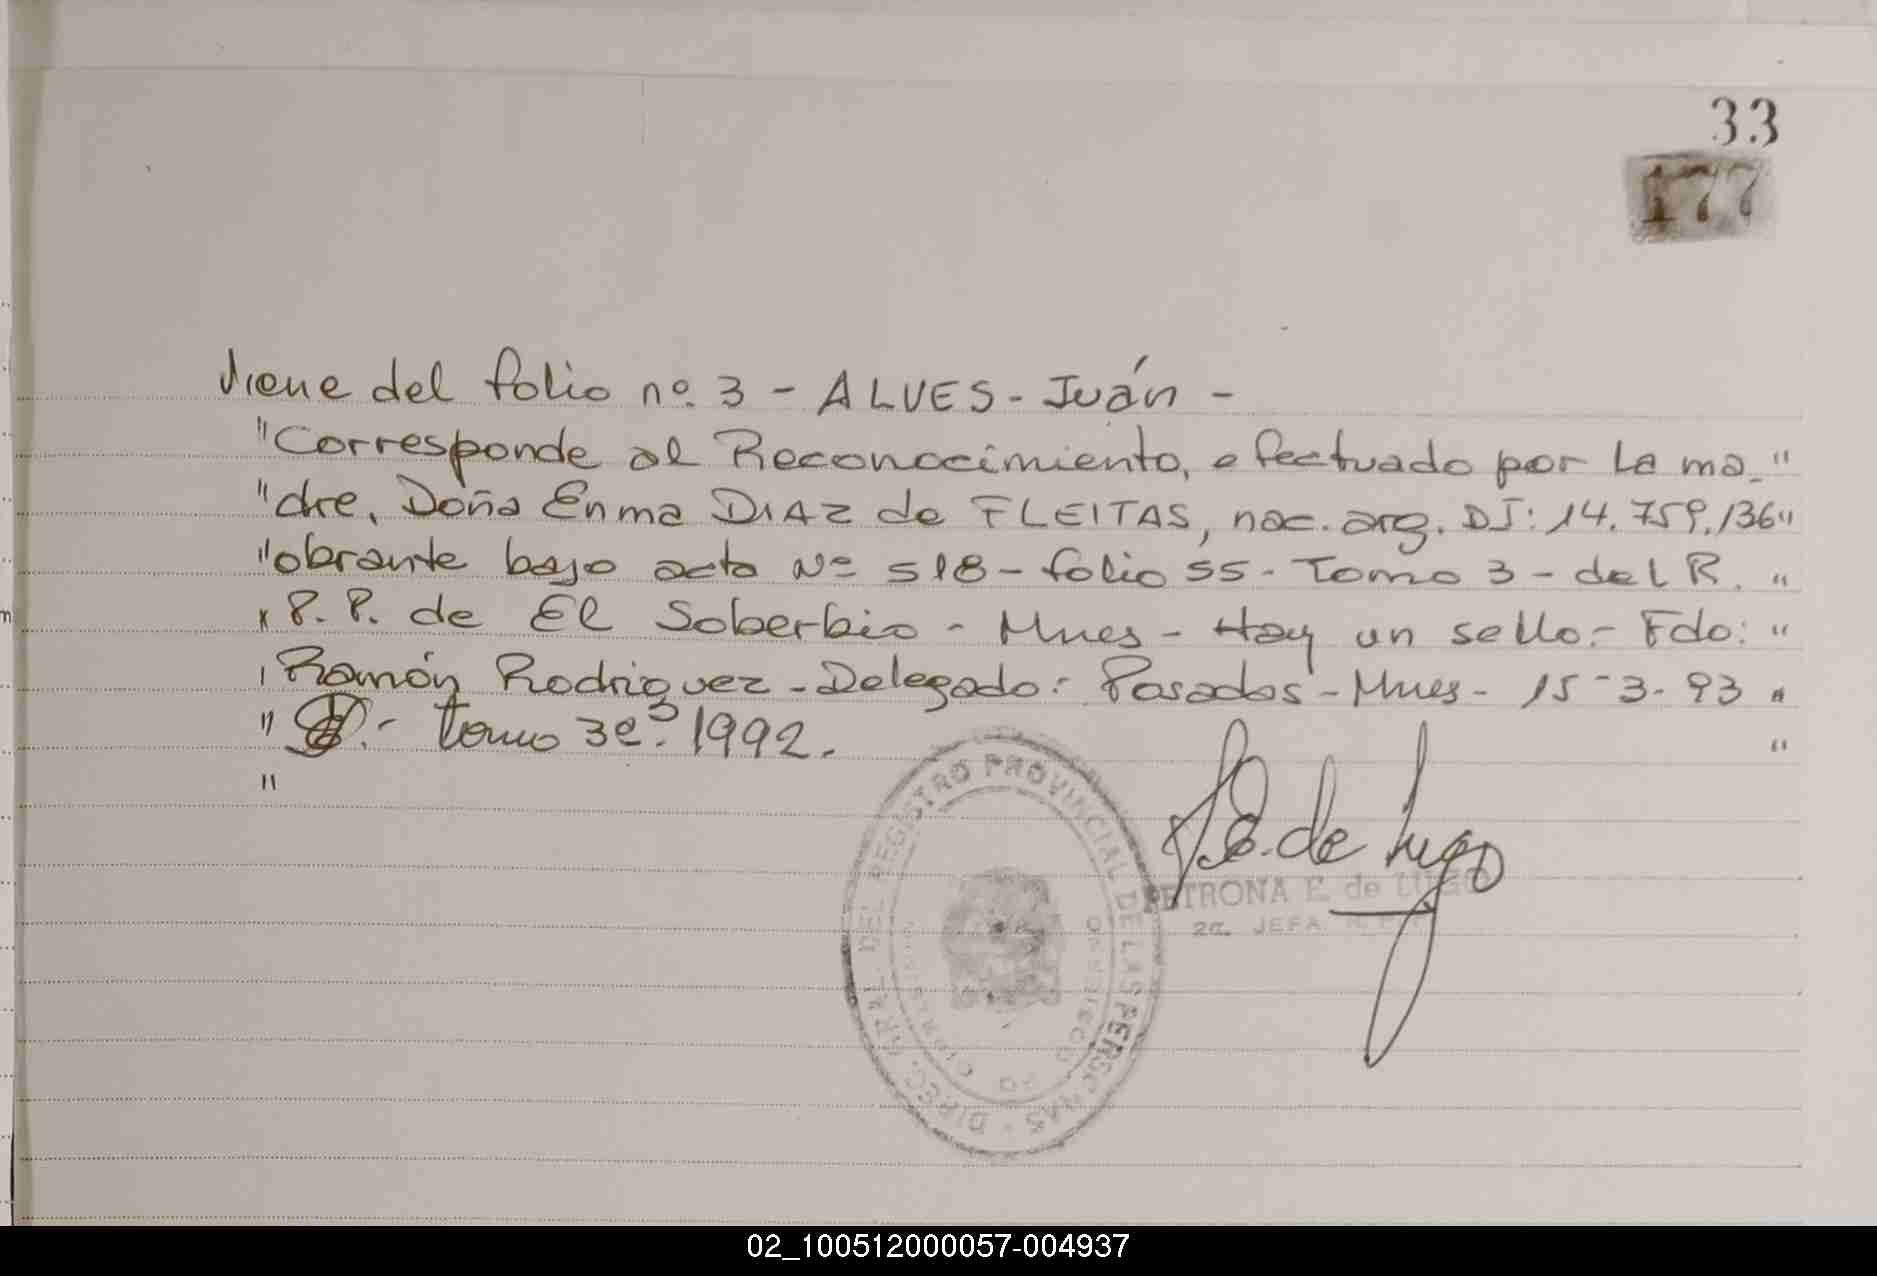 33
177
Viene del folio nº. 3 - ALVES - Juán -
"Corresponde al Reconocimiento, efectuado por La ma_"
"dre, Doña Enma DIAZ de FLEITAS, nac. arg. DI: 14.759.136"
"obrante bajo acta Nº 518 - folio 55 - Tomo 3 - del R. "
"P. P. de El Soberbio - Mnes - Hay un sello.- Fdo: "
"Ramón Rodriguez - Delegado: Posadas - Mnes - 15-3-93 "
" .- tomo 3º. 1992. "
"
DIREC. GRAL. DEL REGISTRO PROVINCIAL DE LAS PERSONAS
P. E. de Lugo
PETRONA E. de LUGO
2a. JEFA
02_100512000057-004937